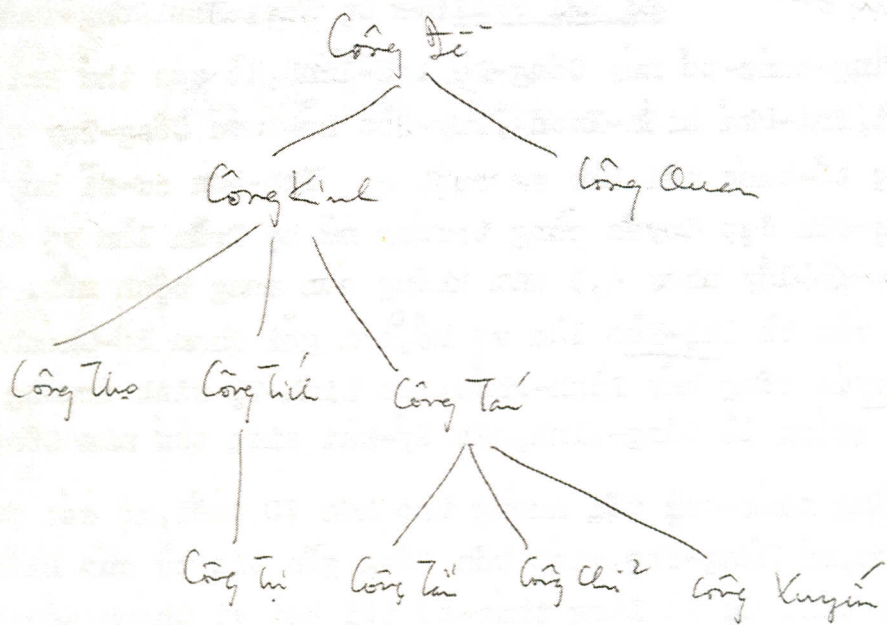 Công Đế
Công Kinh Công Quan
Công Thọ Công Tích Công Tấn
Công Trị Công Tản Công Chử Công Xuyến